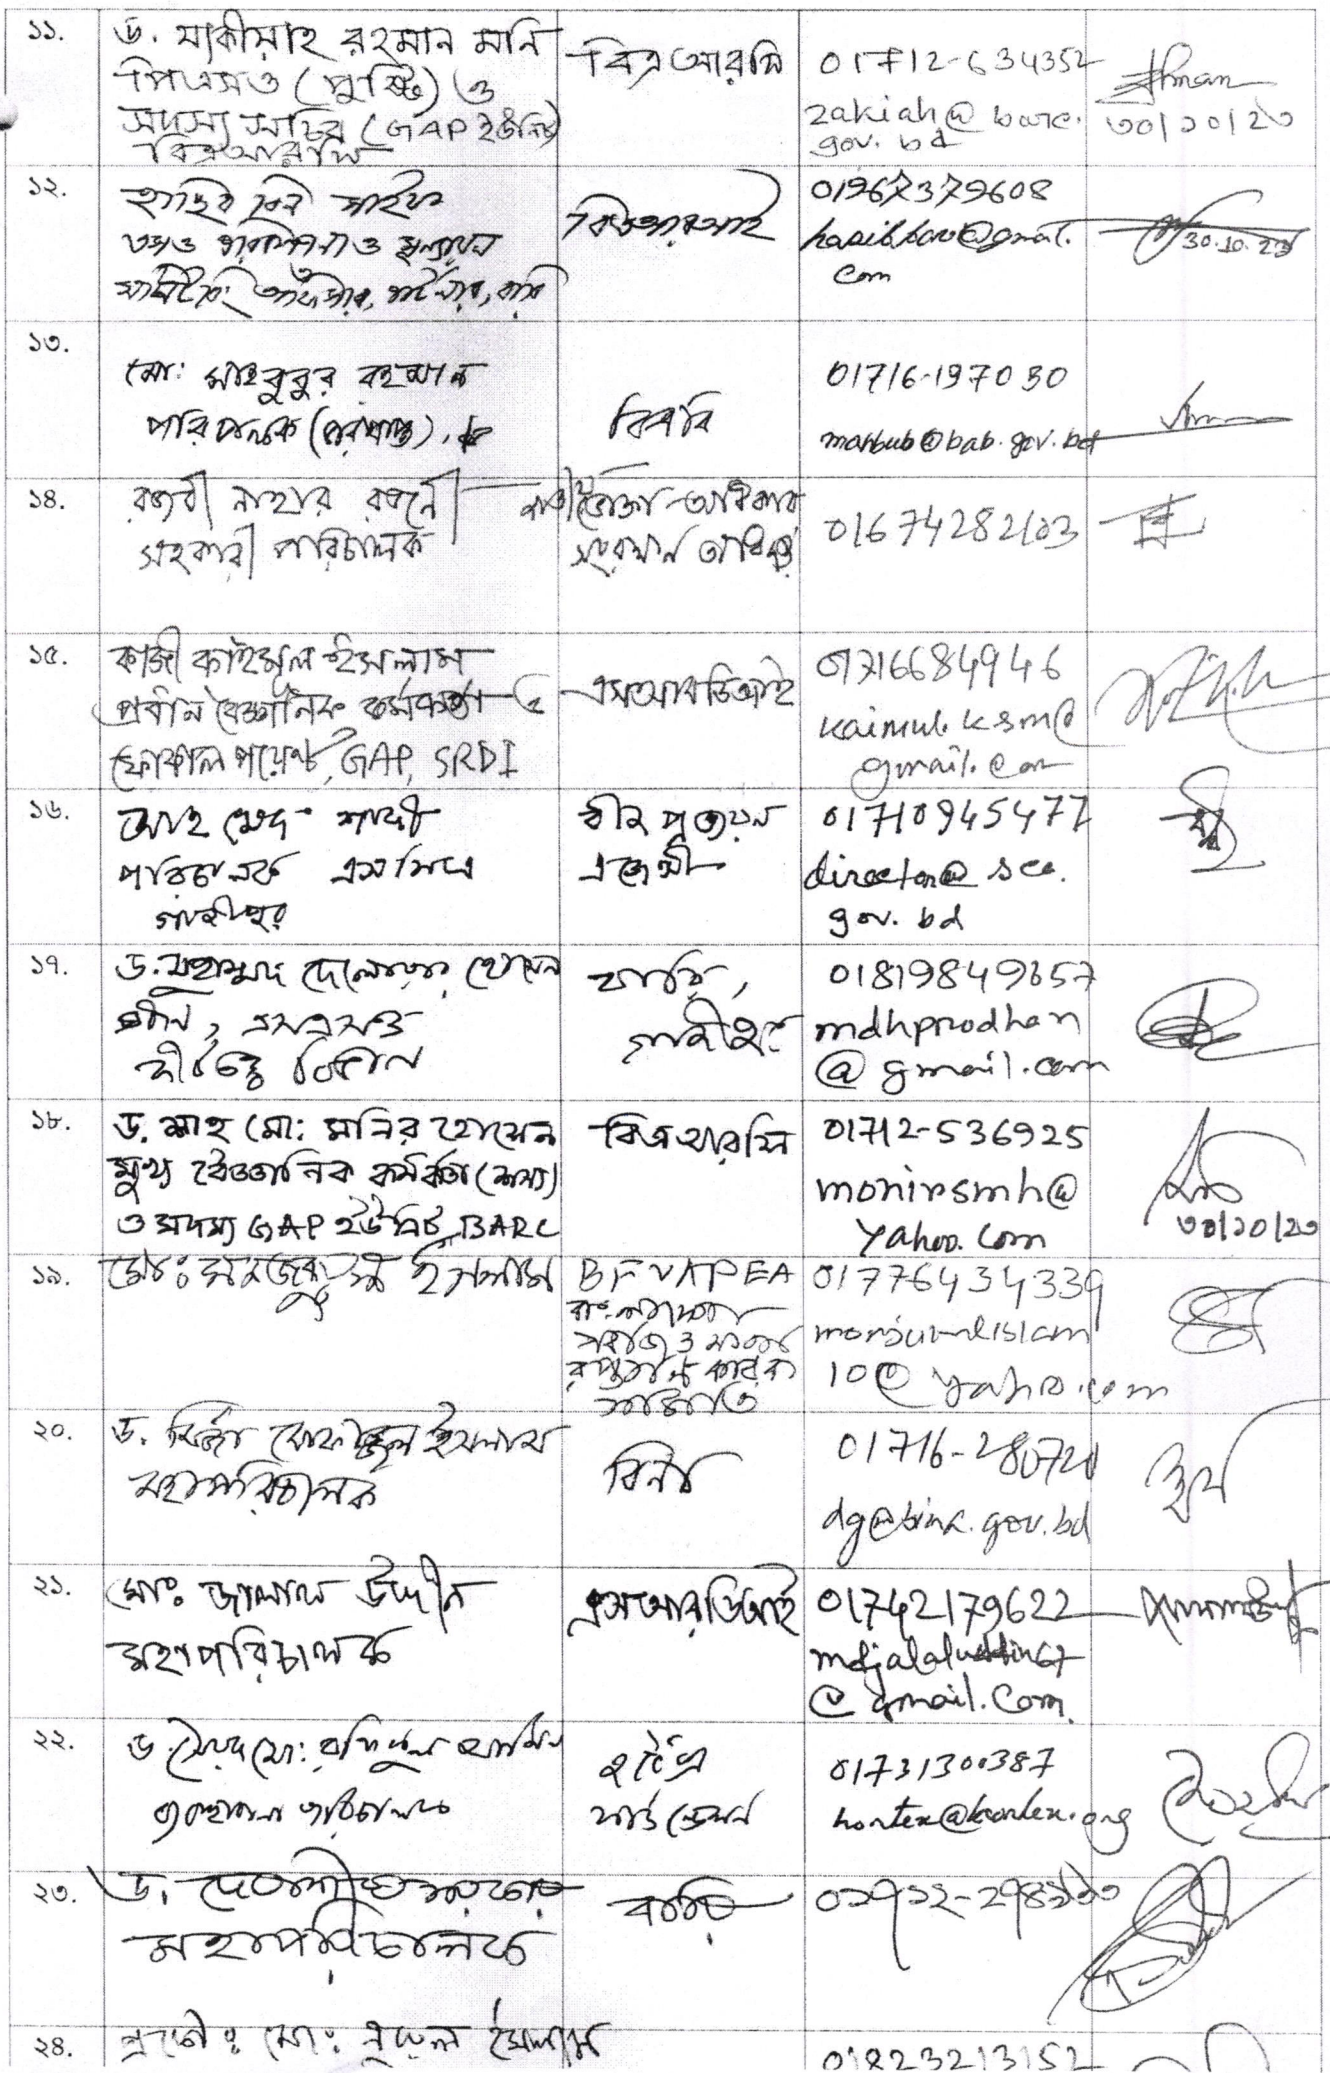 ১১.
ড. যাকীয়াহ রহমান মনি
পিএসও (পুষ্টি) ও
সদস্য সচিব (GAP ইউনিট)
বিএআরসি
বিএআরসি
01712-634352
zakiah@barc.
gov.bd
৩০/১০/২৩
১২.
হাসিব বিন সাইফ
01967379608
hasib.bau@gmail.
com
30.10.23
১৩.
মো: মাহবুবুর রহমান
পরিচালক
বিএবি
01716-197030
mahbub@bab.gov.bd
১৪.
রজবী নাহার রজনী
সহকারী পরিচালক
জাতীয় ভোক্তা-অধিকার
সংরক্ষণ অধিদপ্তর
01674282103
১৫.
কাজী কাইমুল ইসলাম
প্রধান বৈজ্ঞানিক কর্মকর্তা ও
ফোকাল পয়েন্ট, GAP, SRDI
এসআরডিআই
01716684946
kaimul.ksm@
gmail.com
১৬.
আহমেদ শাফী
পরিচালক এসসিএ
গাজীপুর
বীজ প্রত্যয়ন
এজেন্সী
01710945477
director@sca.
gov.bd
১৭.
ড. মুহাম্মদ দেলোয়ার হোসেন
প্রধান, এসএসও
কীটতত্ত্ব বিভাগ
বারি,
গাজীপুর
01819849657
mdhprodhan
@gmail.com
১৮.
ড. শাহ মো: মনির হোসেন
মুখ্য বৈজ্ঞানিক কর্মকর্তা (শস্য)
ও সদস্য GAP ইউনিট, BARC
বিএআরসি
01712-536925
monirsmh@
yahoo.com
৩০/১০/২৩
১৯.
মোঃ মনজুরুল ইসলাম
BFVAPEA
01776434339
monjurulislam
10@yahoo.com
২০.
ড. মির্জা মোফাজ্জল ইসলাম
মহাপরিচালক
বিনা
01716-280720
dg@bina.gov.bd
২১.
মোঃ জালাল উদ্দীন
মহাপরিচালক
এসআরডিআই
01742179622
mdjalaluddin67
@gmail.com
২২.
ড. সৈয়দ মো: রফিকুল আমিন
ব্যবস্থাপনা পরিচালক
হর্টেক্স
ফাউন্ডেশন
01731300387
hortex@hortex.org
২৩.
ড. দেবাশীষ সরকার
মহাপরিচালক
বারি
২৪.
প্রফেঃ মো: নুরুল ইসলাম
01823213152